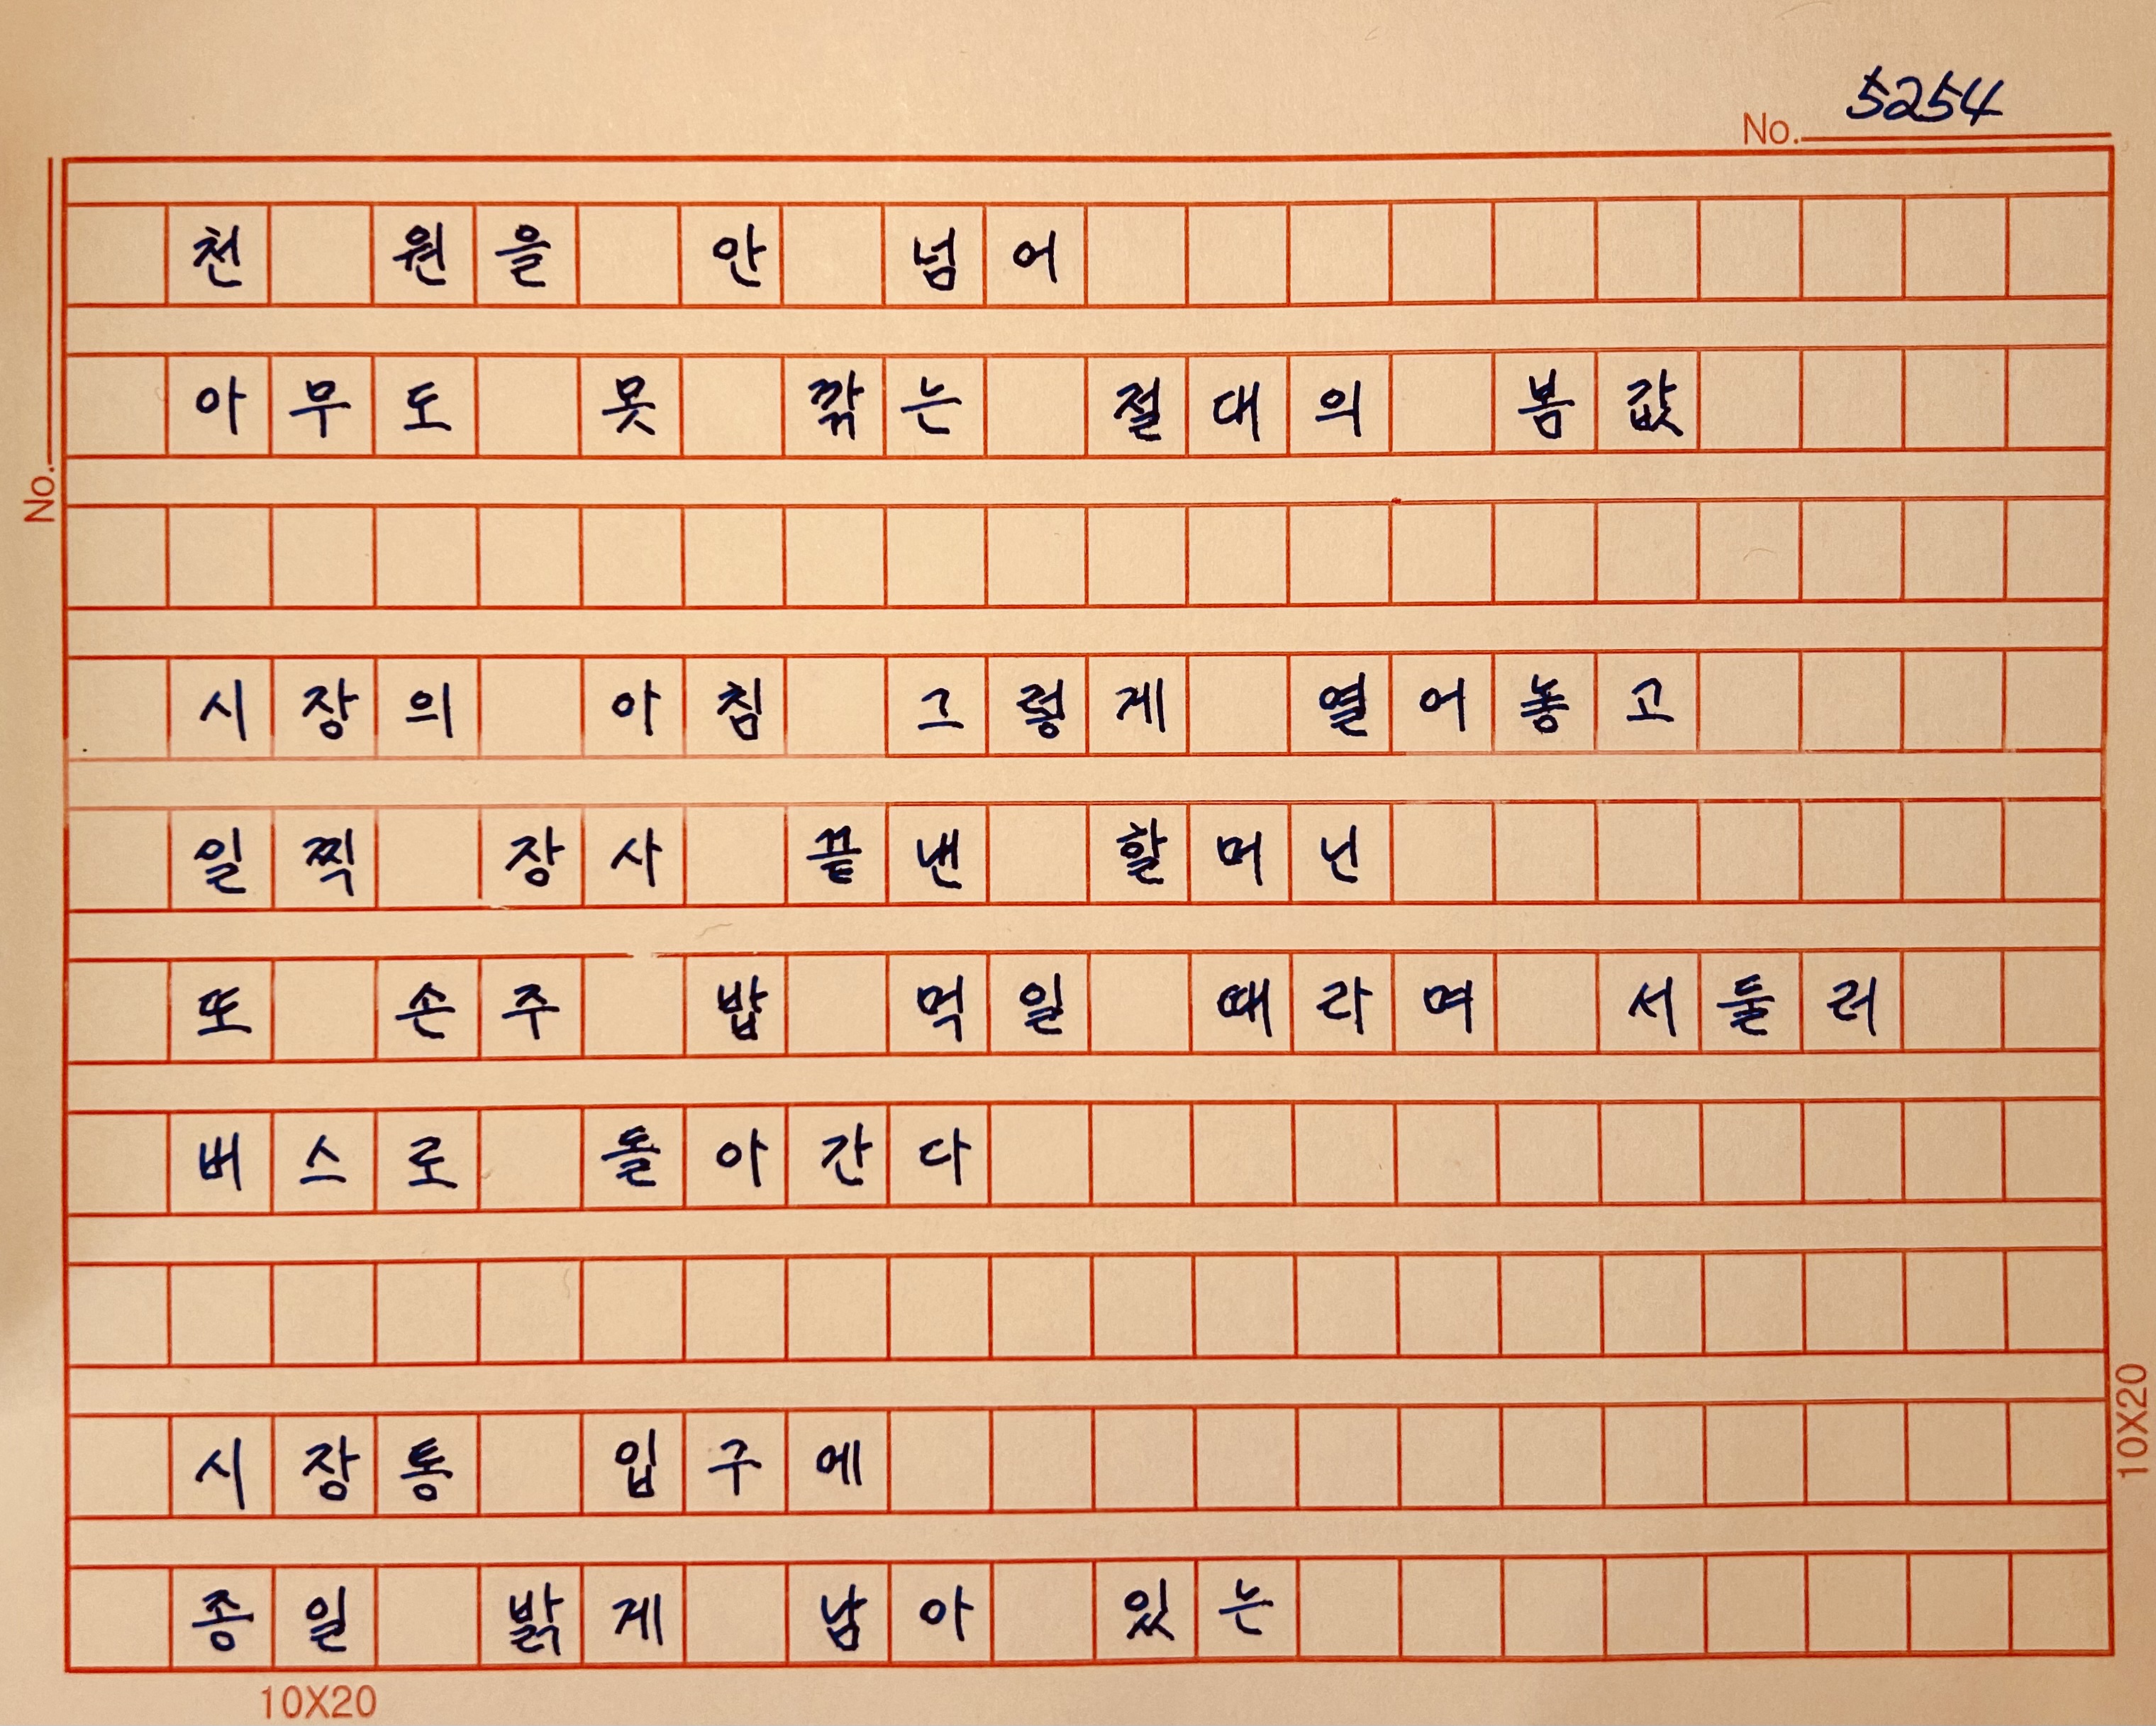 No. 5254
천 원을 안 넘어
아무도 못 깎는 절대의 봄값
No.
시장의 아침 그렇게 열어놓고
일찍 장사 끝낸 할머닌
또 손주 밥 먹일 때라며 서둘러
버스로 돌아간다
시장통 입구에
종일 밝게 남아 있는
10X20
10X20